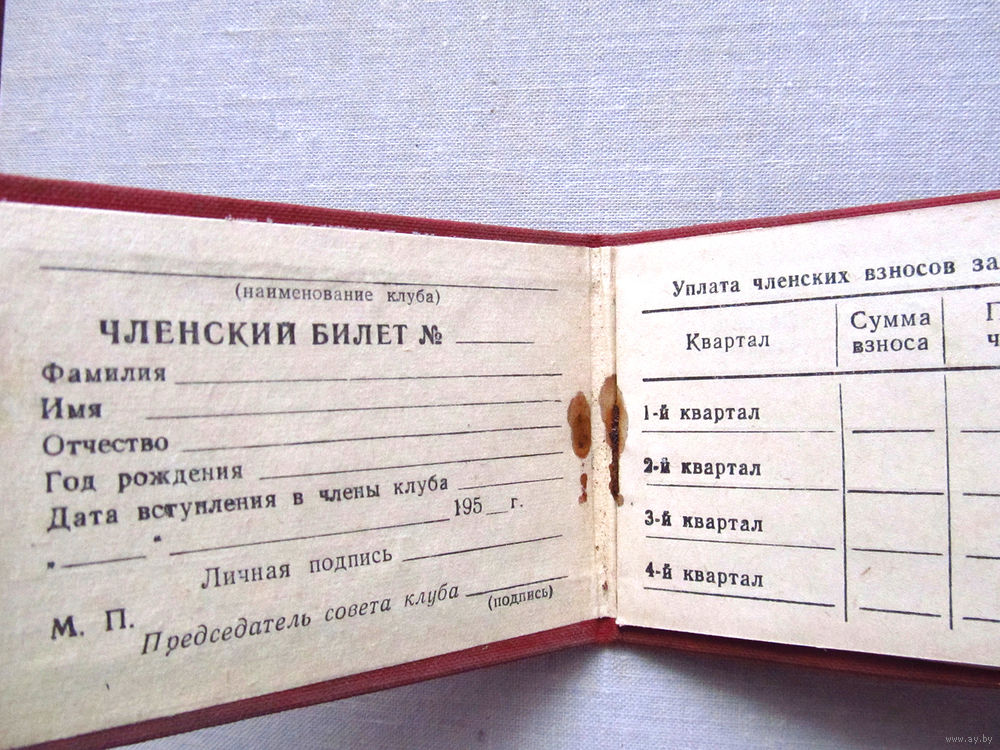 (наименование клуба)
ЧЛЕНСКИЙ БИЛЕТ №
Фамилия
Имя
Отчество
Год рождения
Дата вступления в члены клуба
„ “ 195 г.
Личная подпись
М. П.
Председатель совета клуба
(подпись)
Уплата членских взносов за
Квартал
Сумма взноса
1-й квартал
2-й квартал
3-й квартал
4-й квартал
www.ay.by